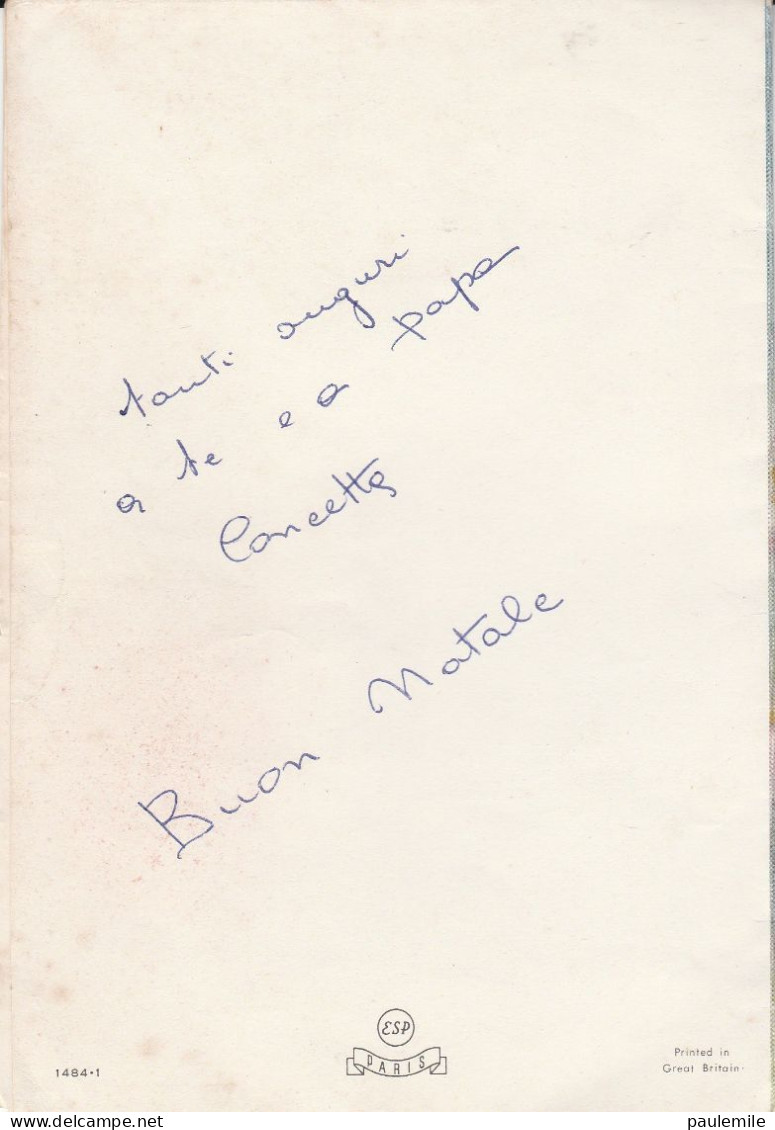 tanti auguri
a te e a papa
Concetta
Buon Natale
ESP
PARIS
1484·1
Printed in
Great Britain·
www.delcampe.net
paulemile